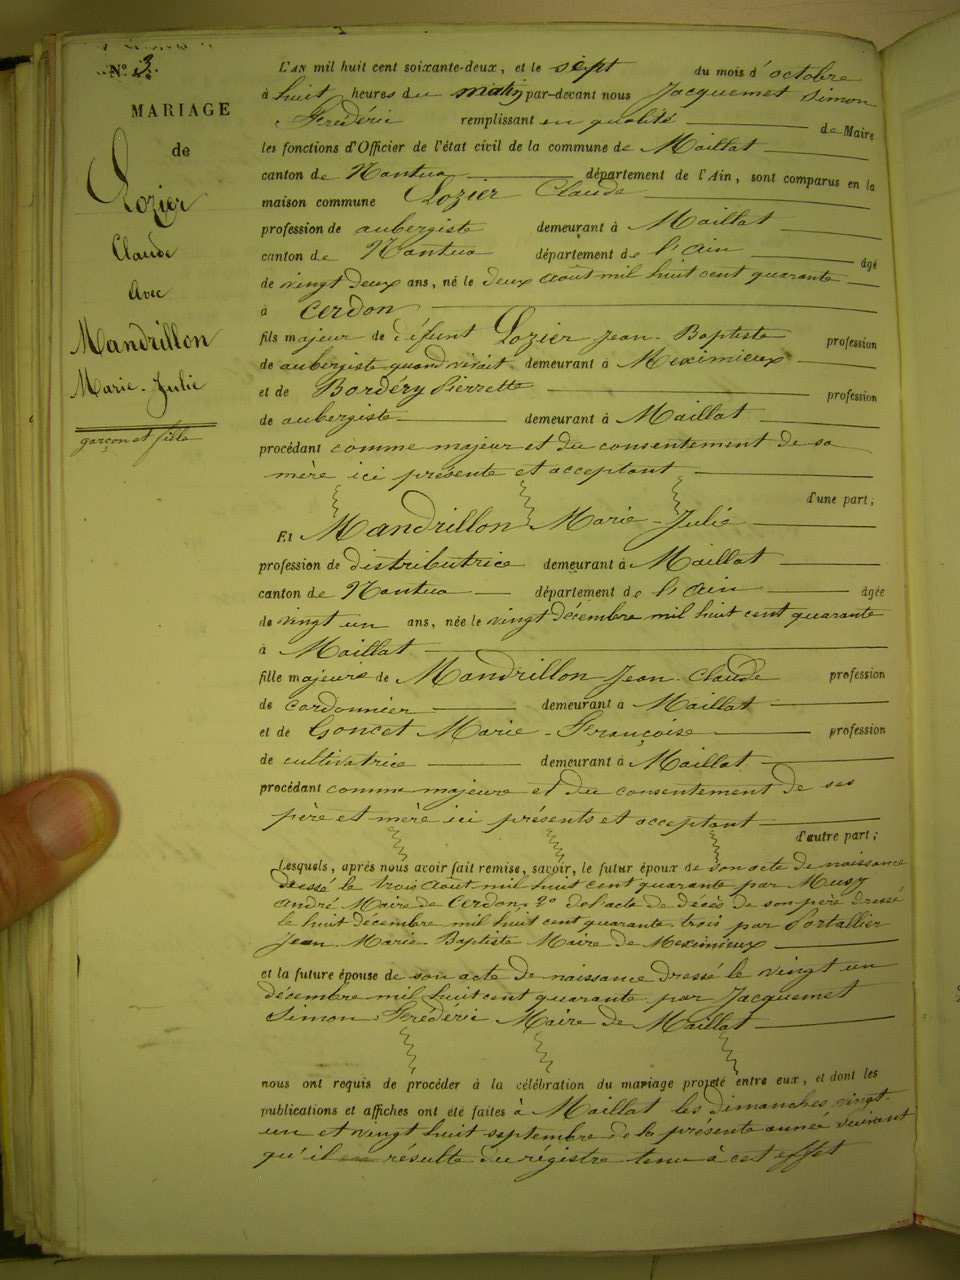 N.º 3.
MARIAGE
de
Lozier
Claude
Avec
Mandrillon
Marie-Julie
garçon et fille
L'AN mil huit cent soixante-deux, et le sept du mois d'octobre
à huit heures du matin par-devant nous Jacquemet Simon
Frédéric remplissant en qualité de Maire
les fonctions d'Officier de l'état civil de la commune de Maillat
canton de Nantua département de l'Ain, sont comparus en la
maison commune Lozier Claude
profession de aubergiste demeurant à Maillat
canton de Nantua département de l'Ain âgé
de vingt deux ans, né le deux août mil huit cent quarante
à Cerdon
fils majeur de défunt Lozier Jean-Baptiste profession
de aubergiste quand vivait demeurant à Meximieux
et de Bordéry Pierrette profession
de aubergiste demeurant à Maillat
procédant comme majeur et du consentement de sa
mère ici présente et acceptant
d'une part;
Et Mandrillon Marie-Julie
profession de distributrice demeurant à Maillat
canton de Nantua département de l'Ain âgée
de vingt un ans, née le vingt décembre mil huit cent quarante
à Maillat
fille majeure de Mandrillon Jean-Claude profession
de cordonnier demeurant à Maillat
et de Goncet Marie-Françoise profession
de cultivatrice demeurant à Maillat
procédant comme majeure et du consentement de ses
père et mère ici présents et acceptant
d'autre part;
Lesquels, après nous avoir fait remise, savoir, le futur époux de son acte de naissance
dressé le trois août mil huit cent quarante par Musy
André Maire de Cerdon, 2º de l'acte de décès de son père dressé
le huit décembre mil huit cent quarante-trois par Portallier
Jean-Marie Baptiste Maire de Meximieux
et la future épouse de son acte de naissance dressé le vingt un
décembre mil huit cent quarante par Jacquemet
Simon Frédéric Maire de Maillat
nous ont requis de procéder à la célébration du mariage projeté entre eux, et dont les
publications et affiches ont été faites à Maillat les dimanches vingt-
un et vingt huit septembre de la présente année suivant
qu'il résulte du régistre tenu à cet effet